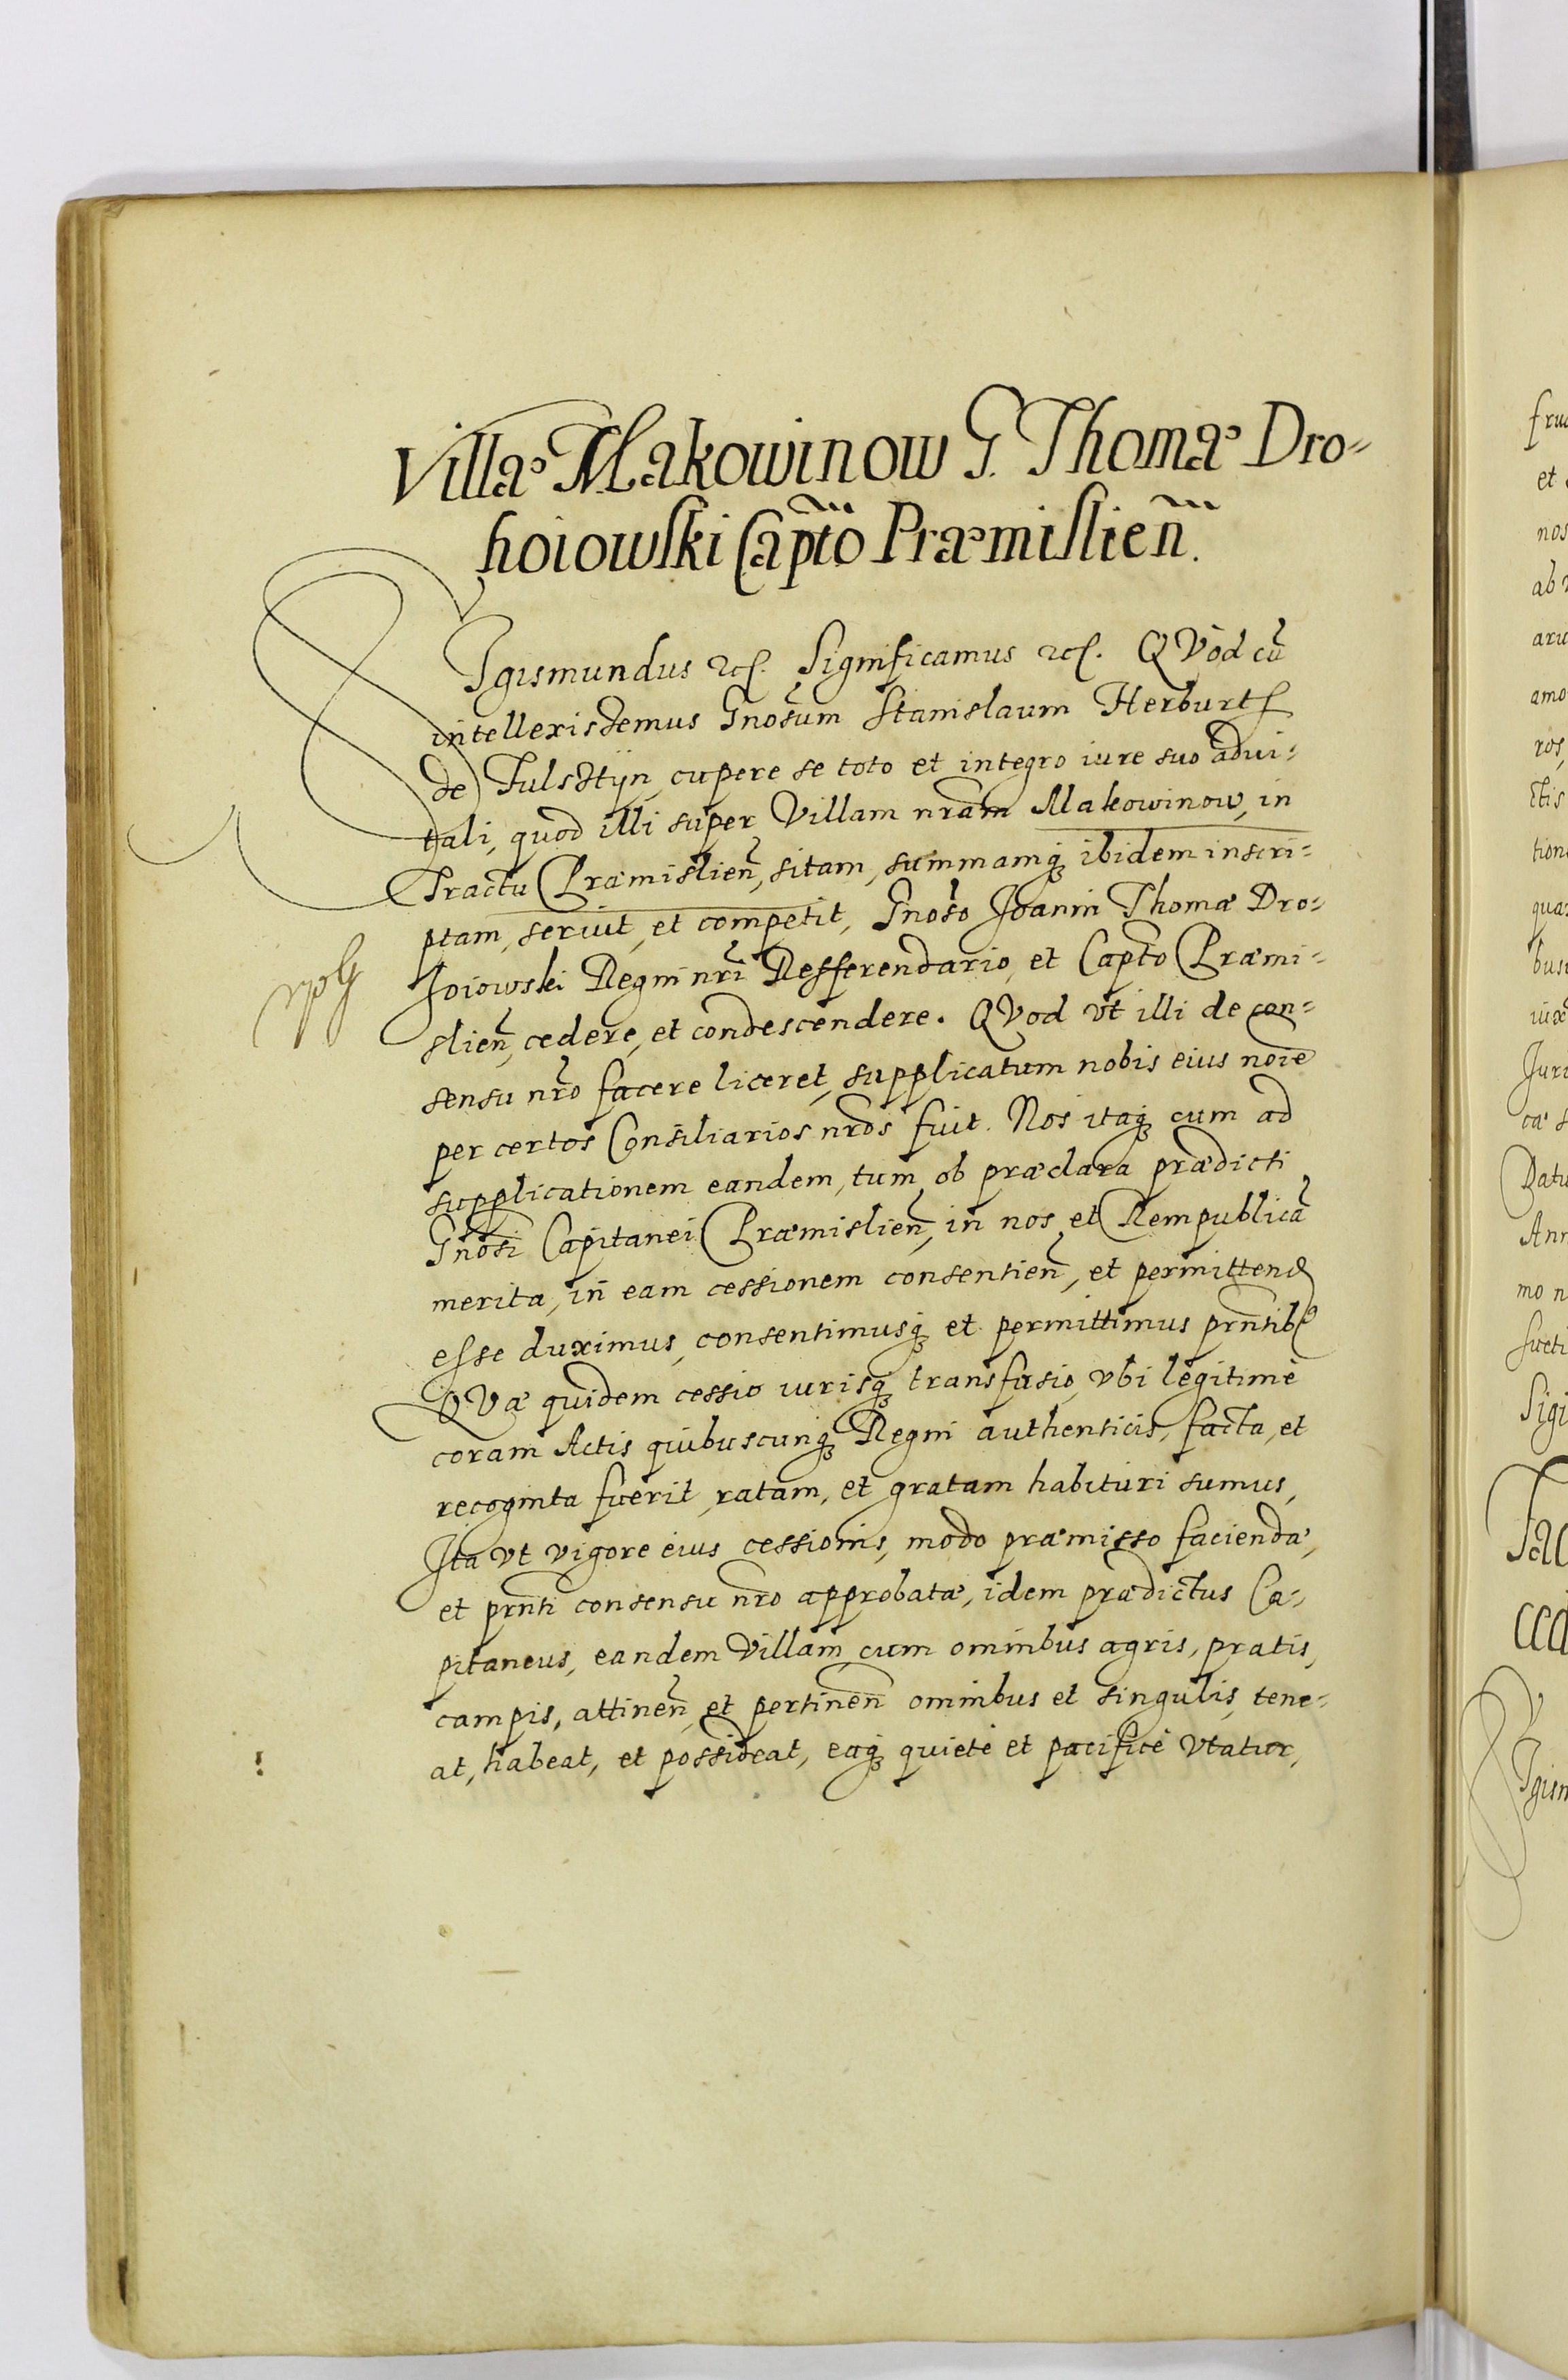 Villæ Makowinow G. Thomæ Dro-
hoiowski Capᵗo Præmislieñ.
SIgismundus etc. Significamus etc. QVod cũ
intellexissemus Gnosum Stanislaum Herburt
de Fulsztÿn, cupere se toto et integro iure suo advi-
tali, quod illi super Villam nr̃am Makowinow, in
Tractu Præmislieñ, sitam, summamq; ibidem inscri-
ptam, servit, et competit, Gnoso Joanni Thomæ Dro-
hoiowski Regni nr̃i Refferendario, et Capto Præmi-
slieñ, cedere, et condescendere. QVod vt illi de con-
sensu nr̃o facere liceret, supplicatum nobis eius noĩe
per certos Consiliarios nr̃os fuit. Nos itaq; cum ad
supplicationem eandem, tum ob præclara prædicti
Gnosi Capitanei Præmislieñ, in nos et Rempublicã
merita, in eam cessionem consentieñ, et permittend
esse duximus, consentimusq; et permittimus prñtib9
QVæ quidem cessio iurisq; transfusio, vbi legitimè
coram Actis quibuscunq; Regni authenticis, facta, et
recognita fuerit, ratam, et gratam habituri sumus,
Ita vt vigore eius cessionis, modo præmisso faciendæ,
et prñti consensu nr̃o approbatæ, idem prædictus Ca-
pitaneus, eandem Villam, cum omnibus agris, pratis,
campis, attineñ, et pertineñ omnibus et singulis, tene-
at, habeat, et possideat, eaq; quietè et pacificè vtatur,